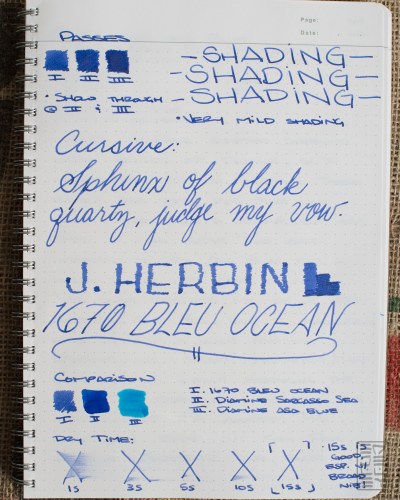 Page:
Date:
PASSES
I II III
• SHOW THROUGH
@ II & III
-SHADING-
-SHADING-
-SHADING-
• VERY MILD SHADING
Cursive:
Sphinx of black
quartz, judge my vow.
J. HERBIN
1670 BLEU OCEAN
COMPARISON
I II III
I. 1670 BLEU OCEAN
II. DIAMINE SARGASSO SEA
III. DIAMINE ASA BLUE
DRY TIME:
1s 3s 5s 10s [15s]
• 15s IS
GOOD,
ESP. W/
BROAD
NIB!